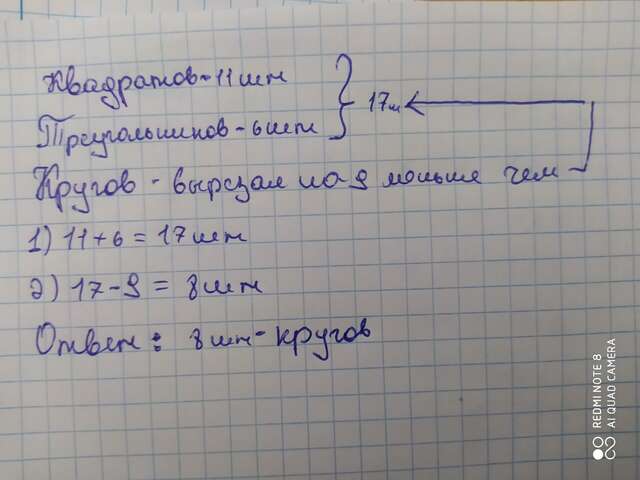 Квадратов - 11 шт
Треугольников - 6 шт } 17 ш
Кругов - вырезал на 9 меньше чем
1) 11 + 6 = 17 шт
2) 17 - 9 = 8 шт
Ответ: 8 шт - кругов
REDMI NOTE 8
AI QUAD CAMERA